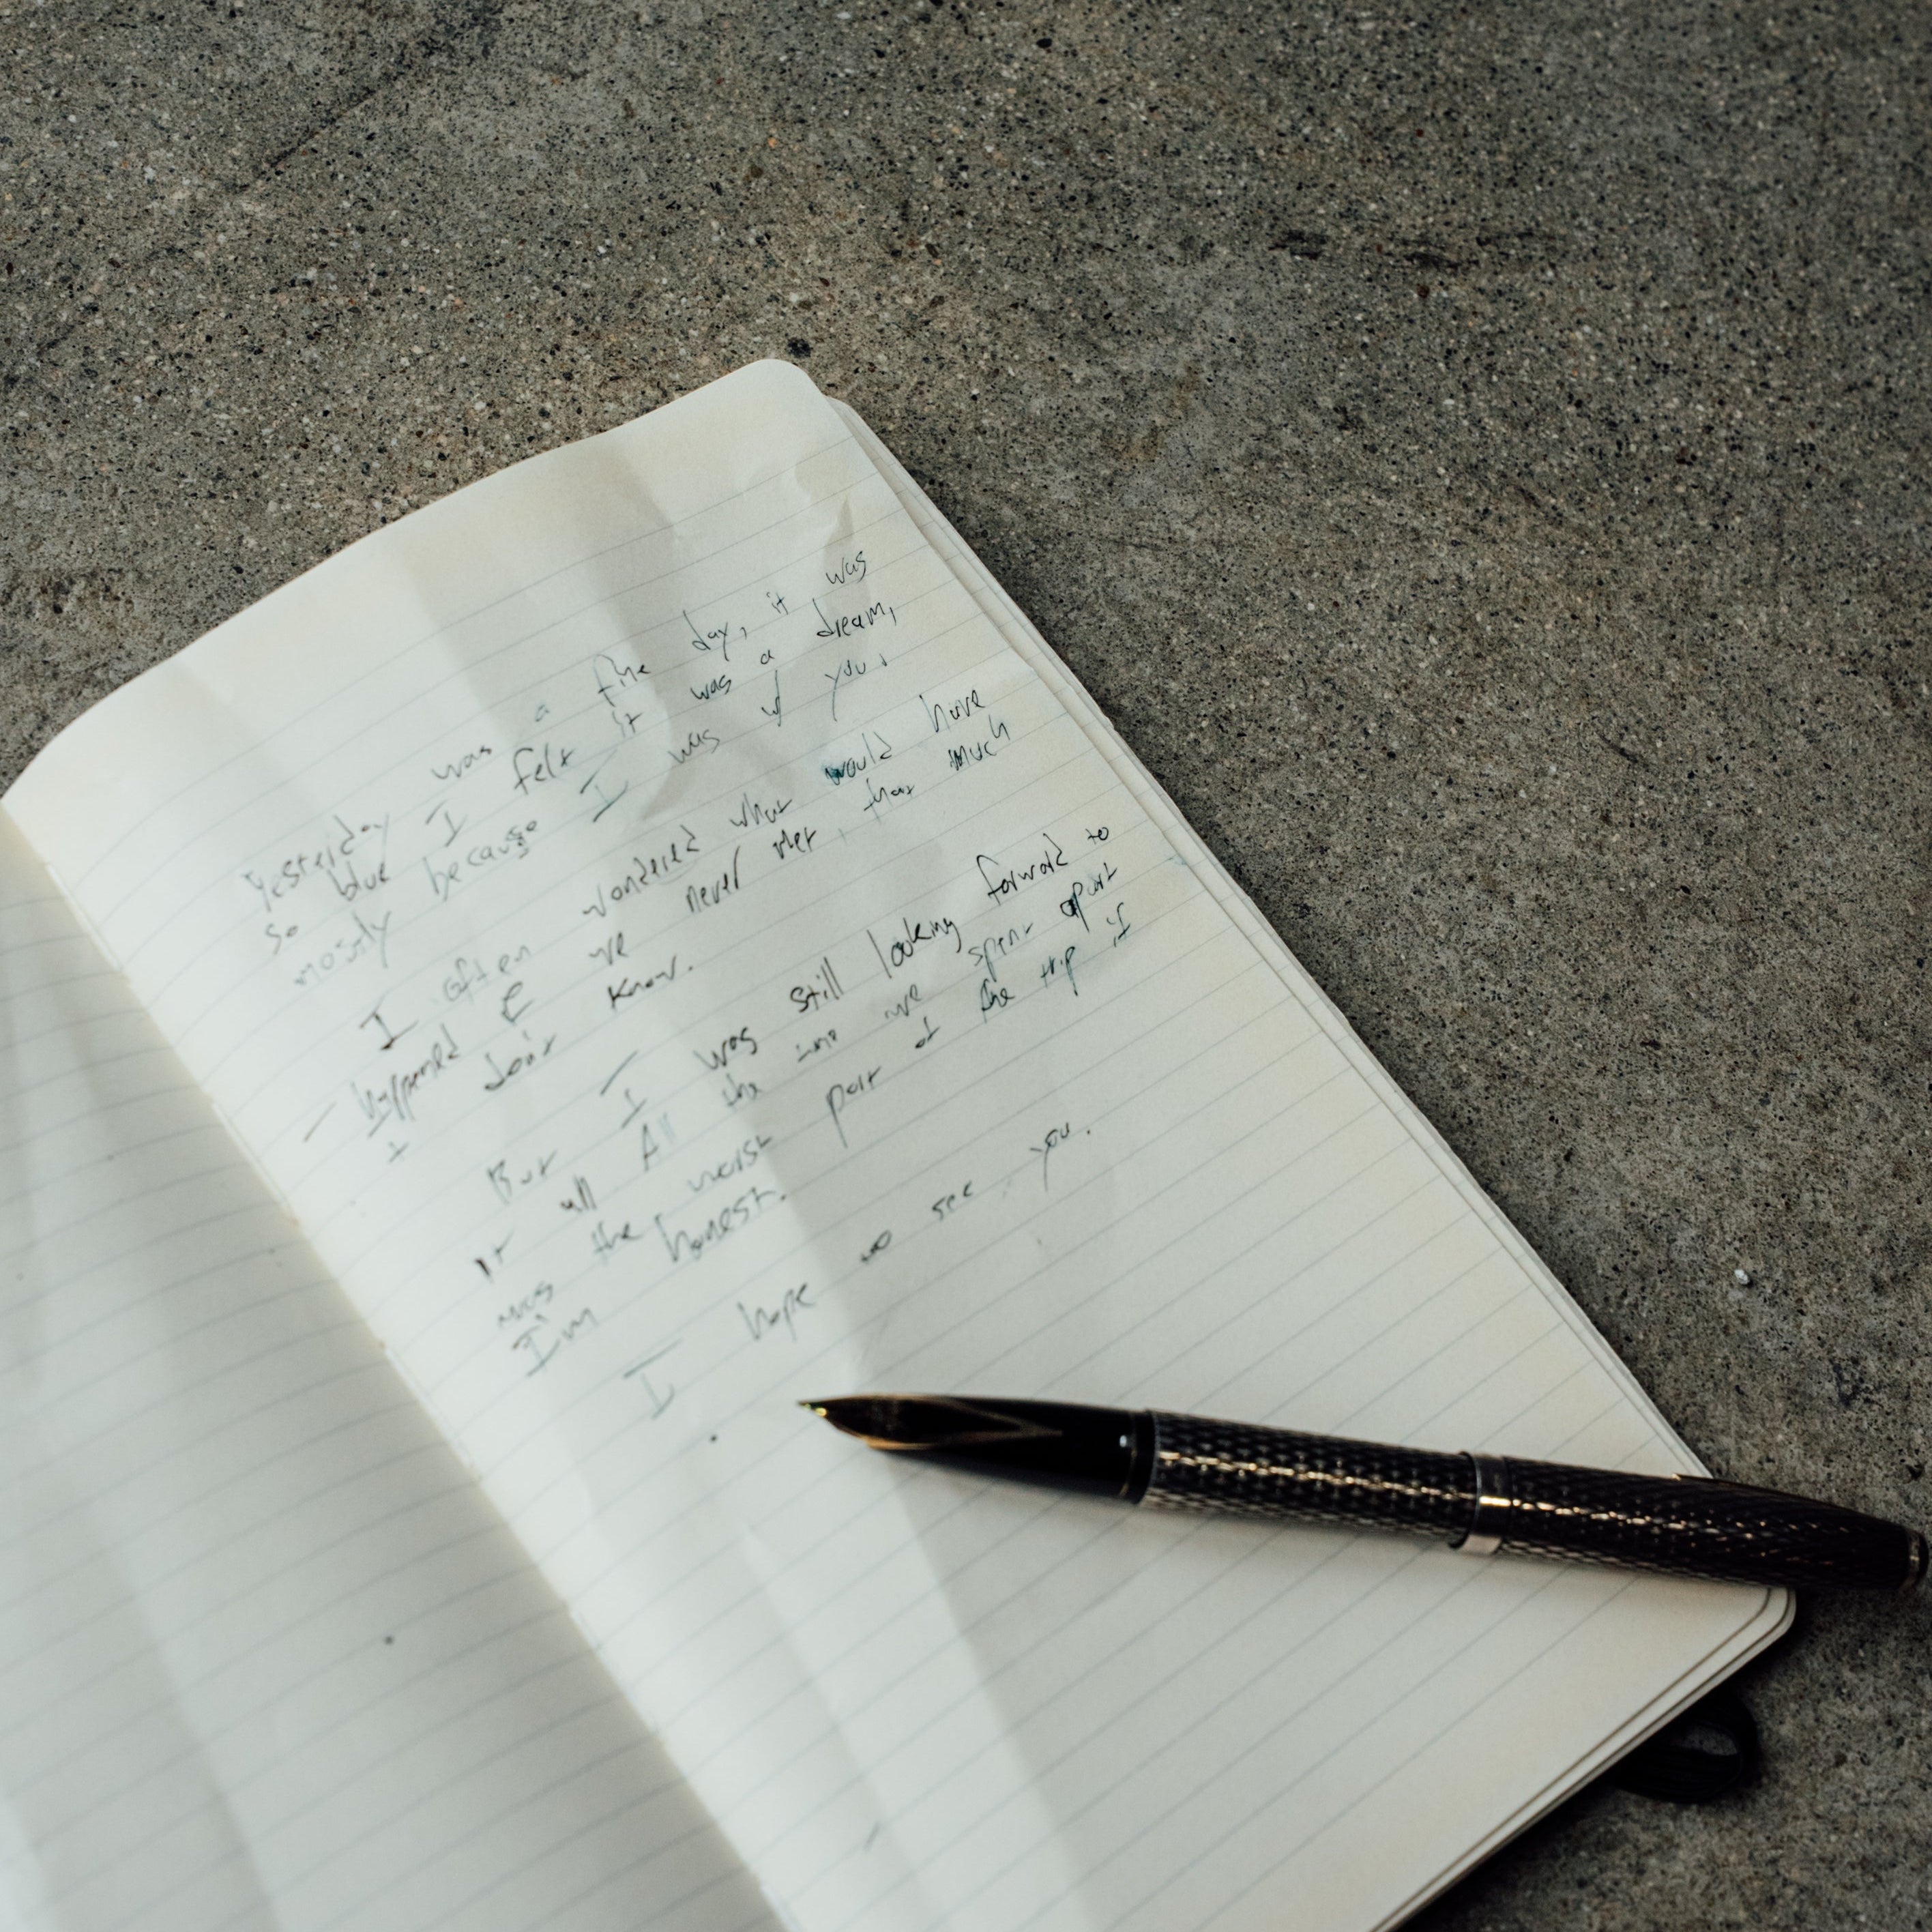 Yesterday was a fine day, it was
so blue I felt it was a dream,
mostly because I was w/ you.
I often wondered what would have
happened if we never met, that much
I don't know.
But I was still looking forward to
it all All the time we spent apart
was the worst part of the trip if
I'm honest.
I hope to see you.